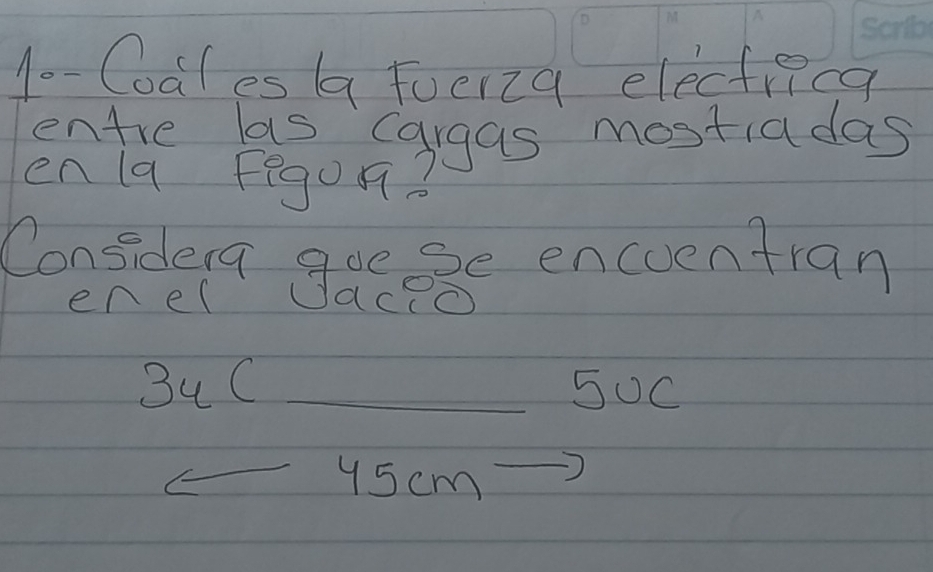 D M A Scribe
1.- Cuál es la Fuerza eléctrica
entre las cargas mostradas
en la Figura?
Considera que se encuentran
en el Vacío
3u C ______ 5uC
← 45cm →